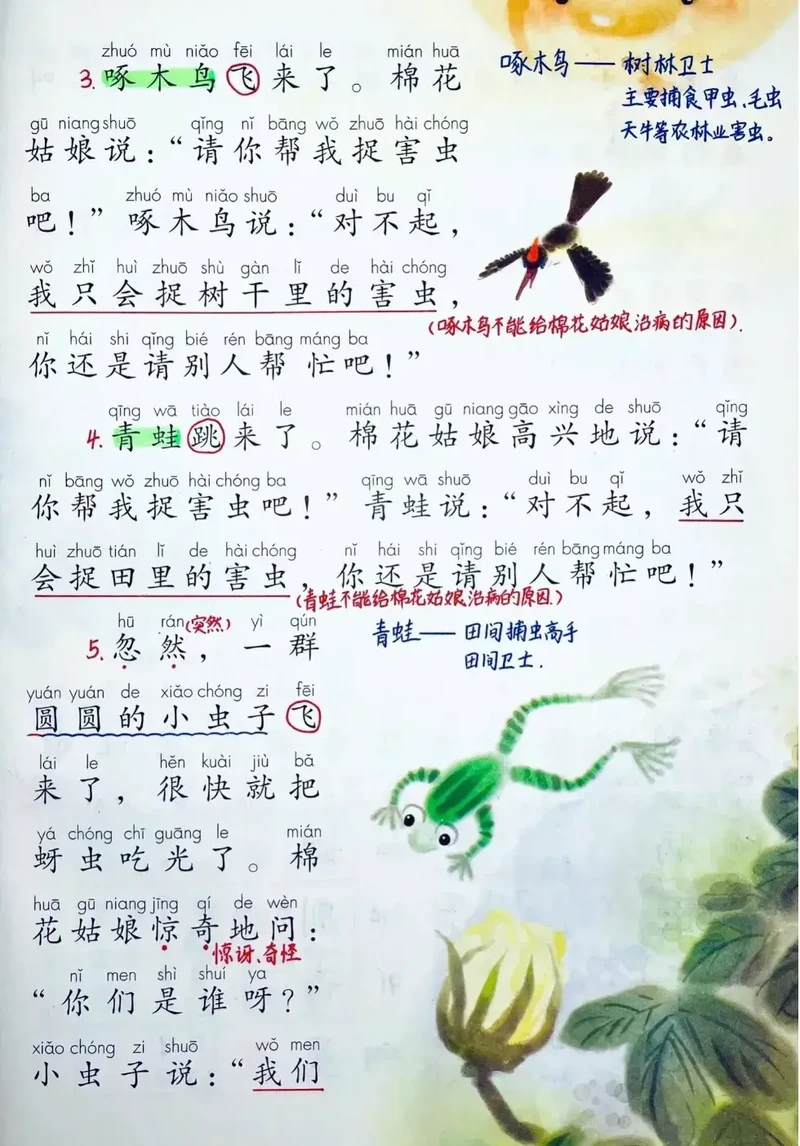 zhuó mù niǎo fēi lái le mián huā
3. 啄木鸟飞来了。棉花
gū niang shuō qǐng nǐ bāng wǒ zhuō hài chóng
姑娘说：“请你帮我捉害虫
ba zhuó mù niǎo shuō duì bu qǐ
吧！”啄木鸟说：“对不起，
wǒ zhǐ huì zhuō shù gàn lǐ de hài chóng
我只会捉树干里的害虫，
nǐ hái shi qǐng bié rén bāng máng ba
你还是请别人帮忙吧！”
啄木鸟——树林卫士
主要捕食甲虫、毛虫
天牛等农林业害虫。
(啄木鸟不能给棉花姑娘治病的原因).
qīng wā tiào lái le mián huā gū niang gāo xìng de shuō qǐng
4. 青蛙跳来了。棉花姑娘高兴地说：“请
nǐ bāng wǒ zhuō hài chóng ba qīng wā shuō duì bu qǐ wǒ zhǐ
你帮我捉害虫吧！”青蛙说：“对不起，我只
huì zhuō tián lǐ de hài chóng nǐ hái shi qǐng bié rén bāng máng ba
会捉田里的害虫，你还是请别人帮忙吧！”
(青蛙不能给棉花姑娘治病的原因.)
青蛙——田间捕虫高手
田间卫士.
hū rán yì qún
5. 忽然，一群
(突然)
yuán yuán de xiǎo chóng zi fēi
圆圆的小虫子飞
lái le hěn kuài jiù bǎ
来了，很快就把
yá chóng chī guāng le mián
蚜虫吃光了。棉
huā gū niang jīng qí de wèn
花姑娘惊奇地问：
惊讶、奇怪
nǐ men shì shuí ya
“你们是谁呀？”
xiǎo chóng zi shuō wǒ men
小虫子说：“我们